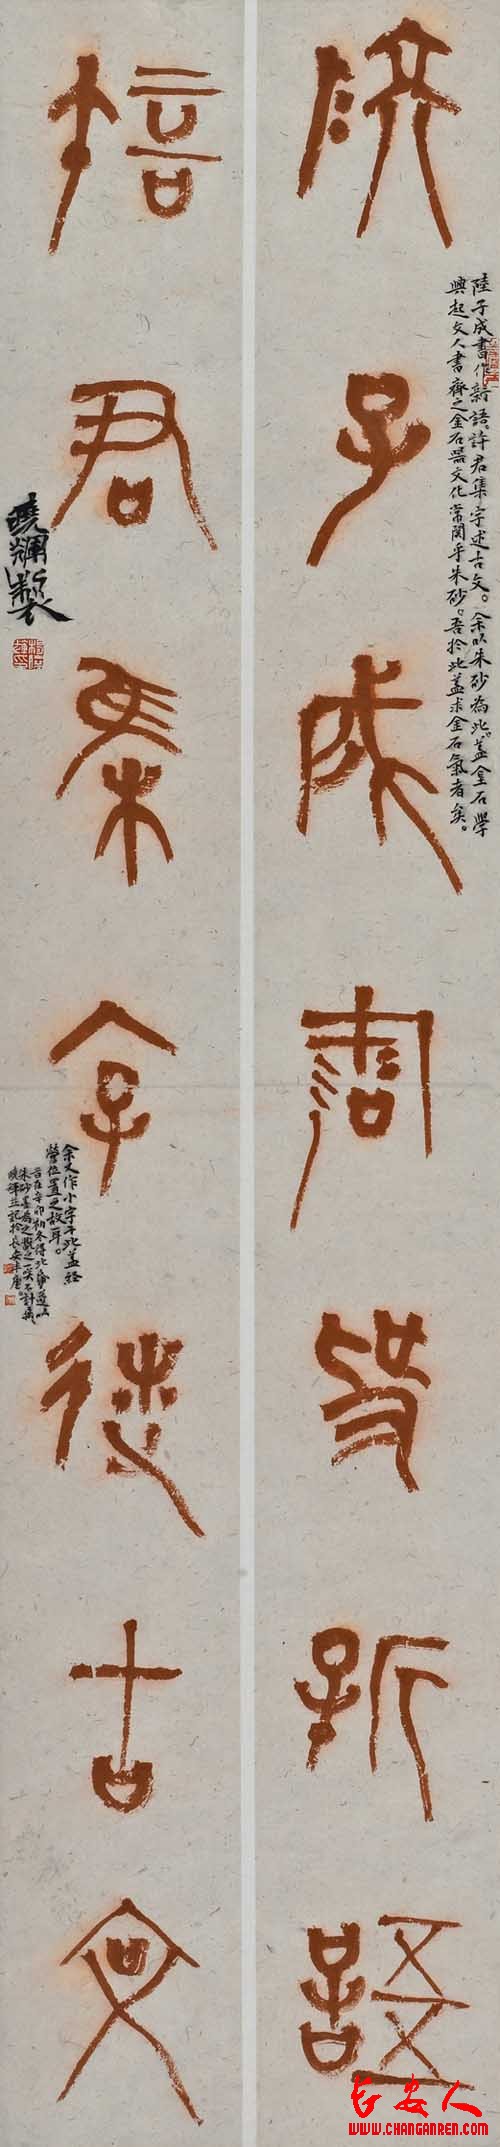 陸子成書作新語
陸子成書作新語。許君集字述古文。余以朱砂為此。蓋金石學
興起文人書齋之金石器文化常関乎朱砂。吾於此蓋求金石氣者矣。
許君集字述古文
曉輝製
余又作小字于此蓋經
營位置之故耳。
在辛卯初冬得此以
朱砂墨為之觀之一笑
曉輝並記於長安
长安人
WWW.CHANGANREN.COM